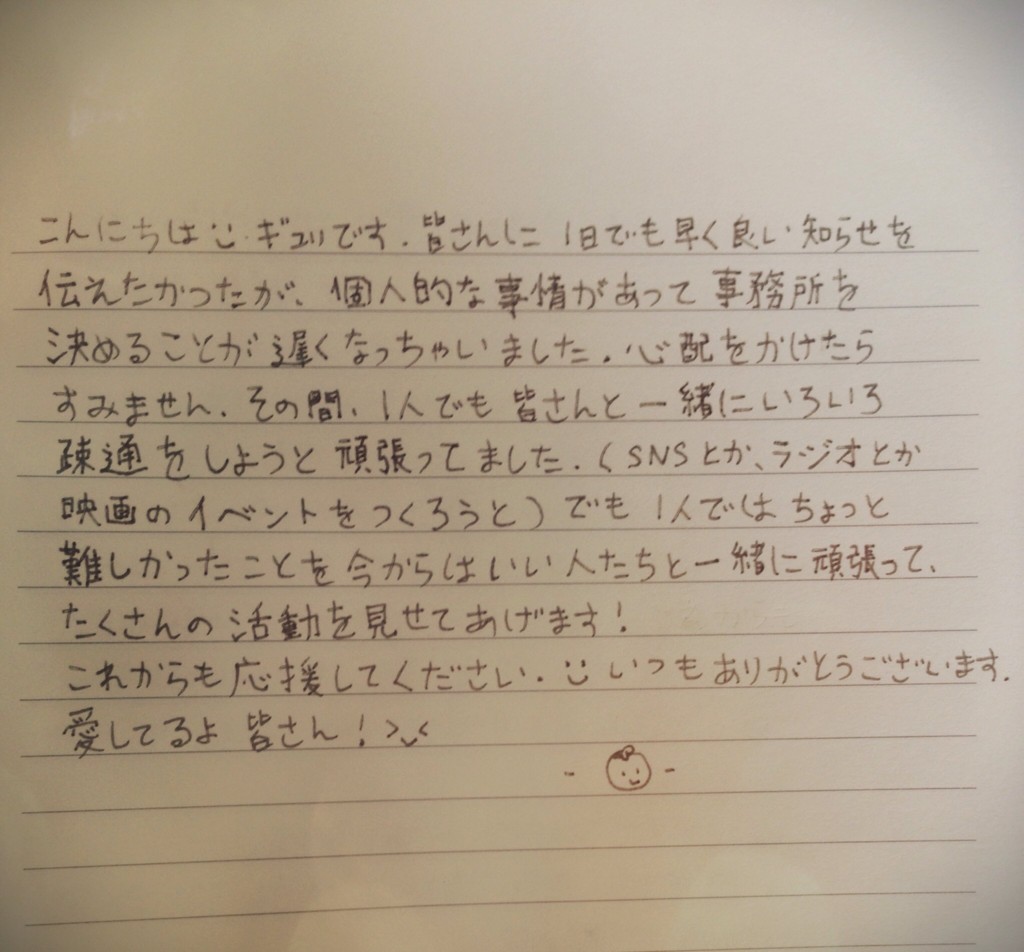 こんにちは ¨̮ ギュリです. 皆さんに 1日でも早く良い知らせを
伝えたかったが、個人的な事情があって 事務所を
決めることが遅くなっちゃいました. 心配をかけたら
すみません. その間、1人でも 皆さんと一緒にいろいろ
疎通をしようと 頑張ってました. (SNSとか、ラジオとか
映画のイベントをつくろうと) でも 1人では ちょっと
難しかったことを今からはいい人たちと一緒に頑張って、
たくさんの 活動を見せてあげます!
これからも応援してください. ¨̮ いつもありがとうございます.
愛してるよ 皆さん! >᎑<